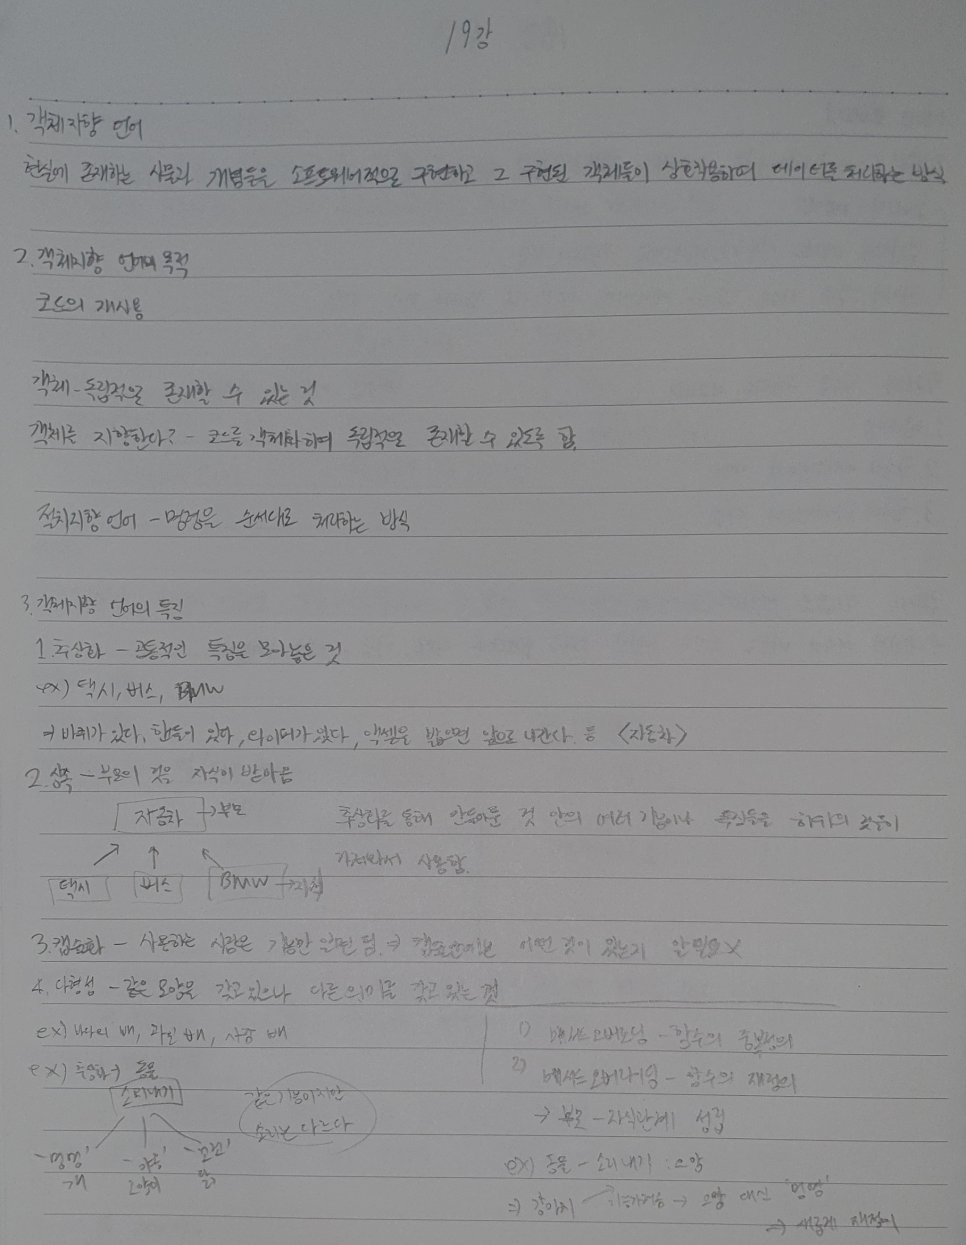 19강
1. 객체지향 언어
현실에 존재하는 사물과 개념들을 소프트웨어적으로 구현하고 그 구현된 객체들이 상호작용하며 데이터를 처리하는 방식
2. 객체지향 언어의 목적
코드의 재사용
객체 - 독립적으로 존재할 수 있는 것
객체를 지향한다? - 코드를 객체화하여 독립적으로 존재할 수 있도록 함.
절차지향 언어 - 명령을 순서대로 처리하는 방식
3. 객체지향 언어의 특징
1. 추상화 - 공통적인 특징을 모아놓은 것
ex) 택시, 버스, BMW
→ 바퀴가 있다, 핸들이 있다, 와이퍼가 있다, 악셀을 밟으면 앞으로 나간다. 등 <자동차>
2. 상속 - 부모의 것을 자식이 받아옴
자동차 → 부모
택시 버스 BMW → 자식
추상화를 통해 만들어둔 것 안의 여러 기능이나 특징들을 하위의 것들이
가져와서 사용함.
3. 캡슐화 - 사용하는 사람은 기능만 알면 됨. → 어떤 것이 있는지 알 필요 X
4. 다형성 - 같은 모양을 갖고 있으나 다른 의미를 갖고 있는 것
ex) 바다의 배, 과일 배, 사람 배
ex) 추상화 → 동물
소리내기
'멍멍' '야옹' '꼬꼬'
개 고양이 닭
같은 기능이지만
소리는 다르다
1) 메서드 오버로딩 - 함수의 중복정의
2) 메서드 오버라이딩 - 함수의 재정의
→ 부모 - 자식관계 성립
ex) 동물 - 소리내기 : 으앙
⇒ 강아지 → 으앙 대신 '멍멍'
→ 새롭게 재정의